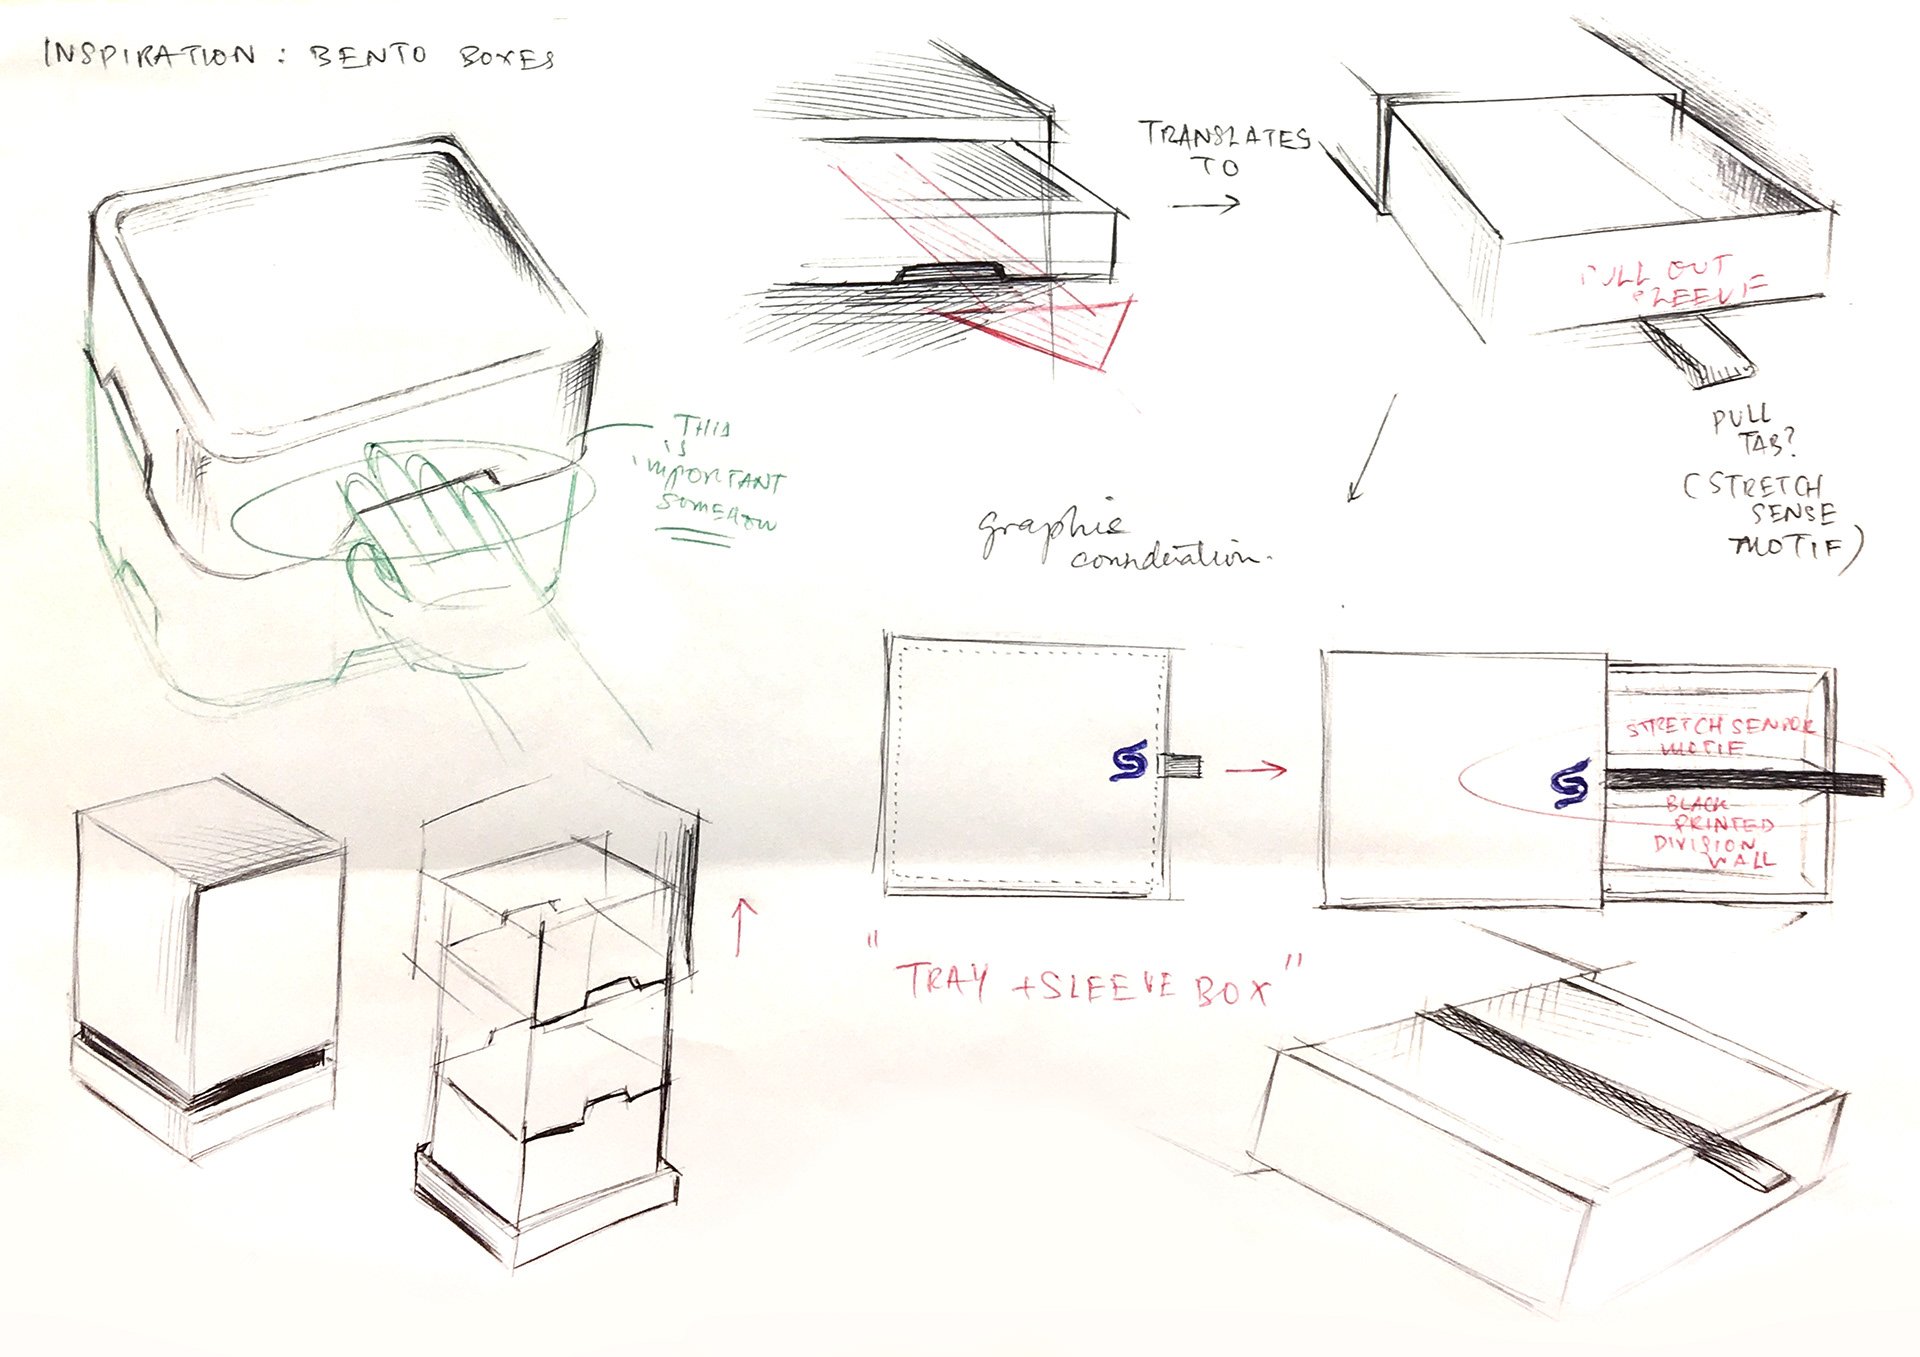 INSPIRATION : BENTO BOXES
TRANSLATES
TO
PULL OUT
SLEEVE
THIS
IS
IMPORTANT
SOMEHOW
PULL
TAB?
(STRETCH
SENSE
MOTIF)
graphic
consideration.
STRETCH SENSOR
MOTIF
BLACK
PRINTED
DIVISION
WALL
"TRAY +SLEEVE BOX"